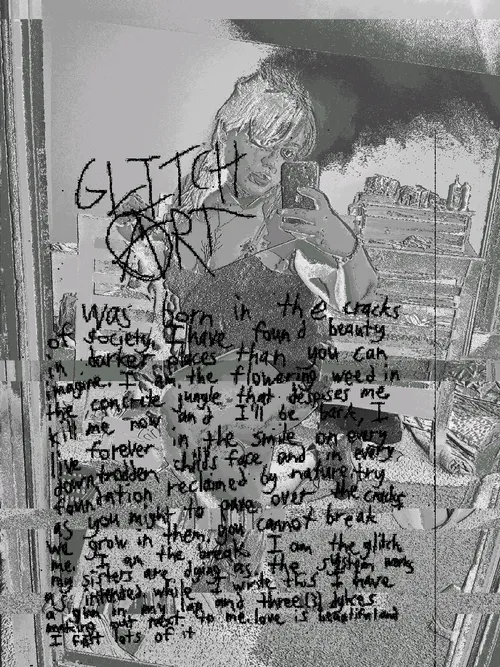 GLITCH
ART
Was born in the cracks
of society. I have found beauty
in darker places than you can
imagine. I am the flowering weed in
the concrete jungle that despises me.
kill me now and I'll be back, I
live forever in the smile on every
downtrodden childs face and in every
foundation reclaimed by nature. try
as you might to pave over the cracks
we grow in them, you cannot break
me. I am the break. I am the glitch
my sisters are dying as the system works
as intended. while I write this I have
a gun in my lap and three(3) dykes
making out next to me. love is beautiful and
I felt lots of it